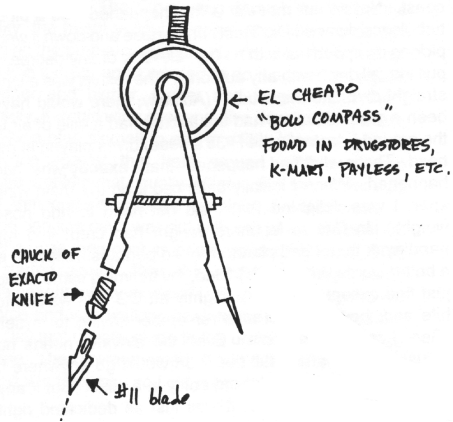 EL CHEAPO
"BOW COMPASS"
FOUND IN DRUGSTORES,
K-MART, PAYLESS, ETC.
CHUCK OF
EXACTO
KNIFE
#11 blade